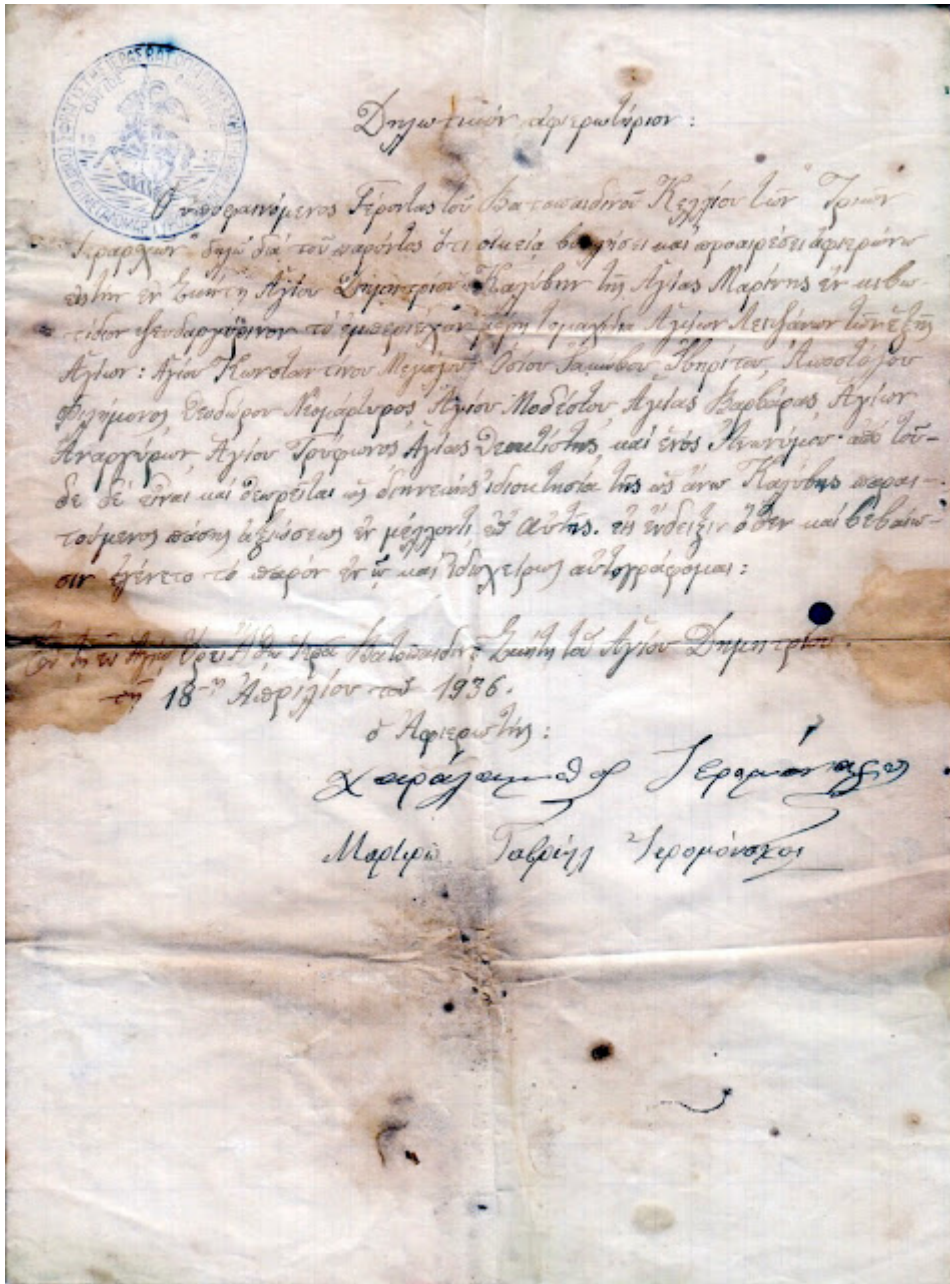 Δηλωτικὸν ἀφιερωτήριον:
Ὁ ὑποφαινόμενος Γέροντας τοῦ Βατοπαιδινοῦ Κελλίου τῶν "Τριῶν
Ἱεραρχῶν" δηλῶ διὰ τοῦ παρόντος ὅτι οἰκείᾳ βουλήσει καὶ προαιρέσει ἀφιερώνω
εἰς τὴν ἐν Σκήτῃ Ἁγίου Δημητρίου Καλύβην τῆς Ἁγίας Μαρίνης ἓν κιβω-
τίδιον τὸ ἐμπεριέχον μέρη Ἁγίων Λειψάνων τῶν ἑξῆς
Ἁγίων: Ἁγίου Κωνσταντίνου Μεγάλου Ὁσίου Ἰακώβου Ἰβηρίτου, Ἀποστόλου
Φιλήμονος, Θεοδώρου Νεομάρτυρος, Ἁγίου Μοδέστου, Ἁγίας Βαρβάρας, Ἁγίων
Ἀναργύρων, Ἁγίου Τρύφωνος, Ἁγίας Θεοκτίστης, καὶ ἑνὸς Ἀνωνύμου· ἀπὸ τοῦ-
δε δὲ εἶναι καὶ θεωρεῖται ὡς διηνεκὴς ἰδιοκτησία τῆς ὡς ἄνω Καλύβης παραι-
τούμενος πάσης ἀξιώσεως ἐν μέλλοντι ἐπ' αὐτῆς. εἰς ἔνδειξιν ὅθεν καὶ βεβαίω-
σιν ἐγένετο τὸ παρὸν ἐν ᾧ καὶ ἰδιοχείρως αὐτογράφομαι:
Ἐν τῇ ἐν Ἁγίῳ Ὄρει Ἄθω Ἱερᾷ Βατοπαιδινῇ Σκήτῃ τοῦ Ἁγίου Δημητρίου.
τῇ 18-ῃ Ἀπριλίου τοῦ 1936.
ὁ Ἀφιερωτής:
Χαράλαμπος Ἱερομόναχος
Μαρτυρῶ Γαβριήλ Ἱερομόναχος